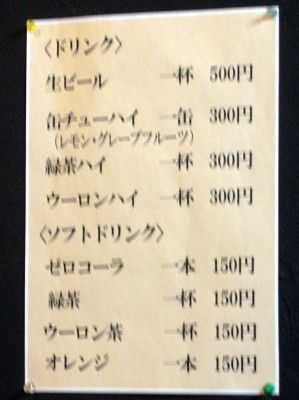 〈ドリンク〉
生ビール 一杯 500円
缶チューハイ 一缶 300円
(レモン・グレープフルーツ)
緑茶ハイ 一杯 300円
ウーロンハイ 一杯 300円
〈ソフトドリンク〉
ゼロコーラ 一本 150円
緑茶 一杯 150円
ウーロン茶 一杯 150円
オレンジ 一本 150円